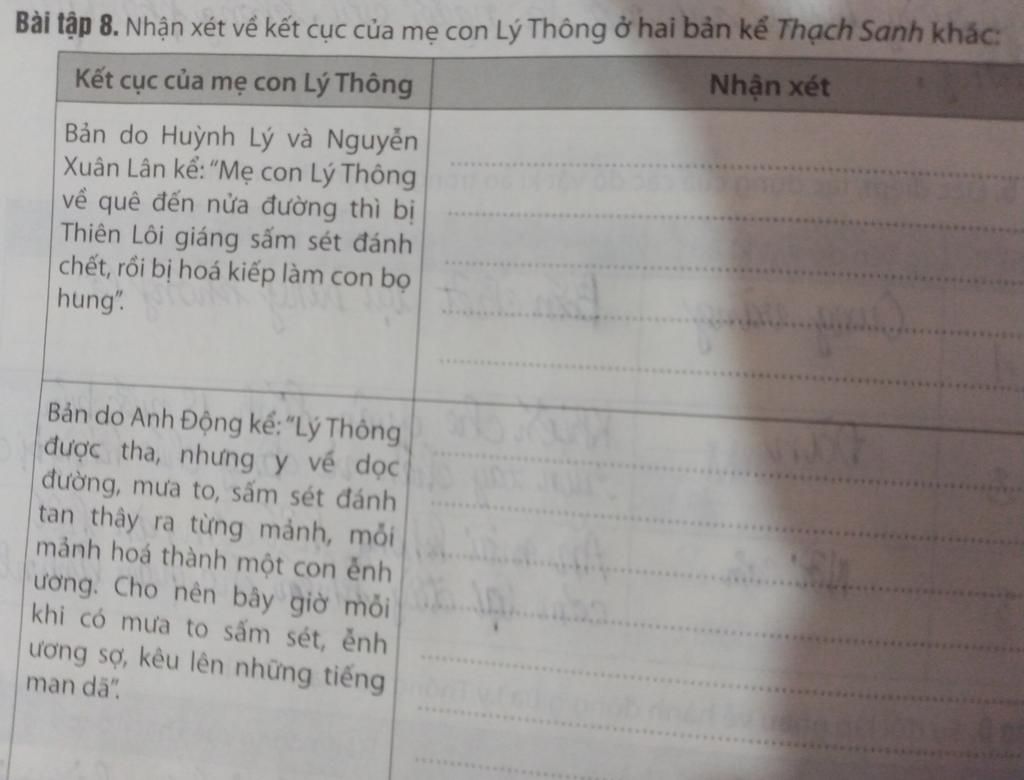 Bài tập 8. Nhận xét về kết cục của mẹ con Lý Thông ở hai bản kể Thạch Sanh khác:
Kết cục của mẹ con Lý Thông
Nhận xét
Bản do Huỳnh Lý và Nguyễn
Xuân Lân kể: “Mẹ con Lý Thông
về quê đến nửa đường thì bị
Thiên Lôi giáng sấm sét đánh
chết, rồi bị hoá kiếp làm con bọ
hung”.
Bản do Anh Động kể: “Lý Thông
được tha, nhưng y về dọc
đường, mưa to, sấm sét đánh
tan thây ra từng mảnh, mỗi
mảnh hoá thành một con ễnh
ương. Cho nên bây giờ mỗi
khi có mưa to sấm sét, ễnh
ương sợ, kêu lên những tiếng
man dã”.